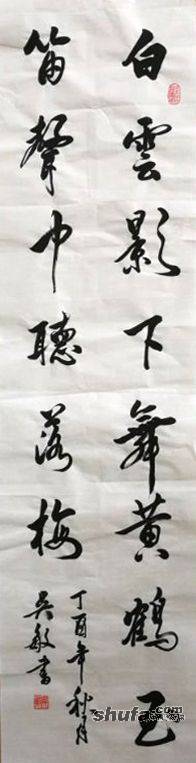 白雲影下舞黄鶴玉
笛聲中聽落梅
丁酉年秋月
吴敏書
shufa.com